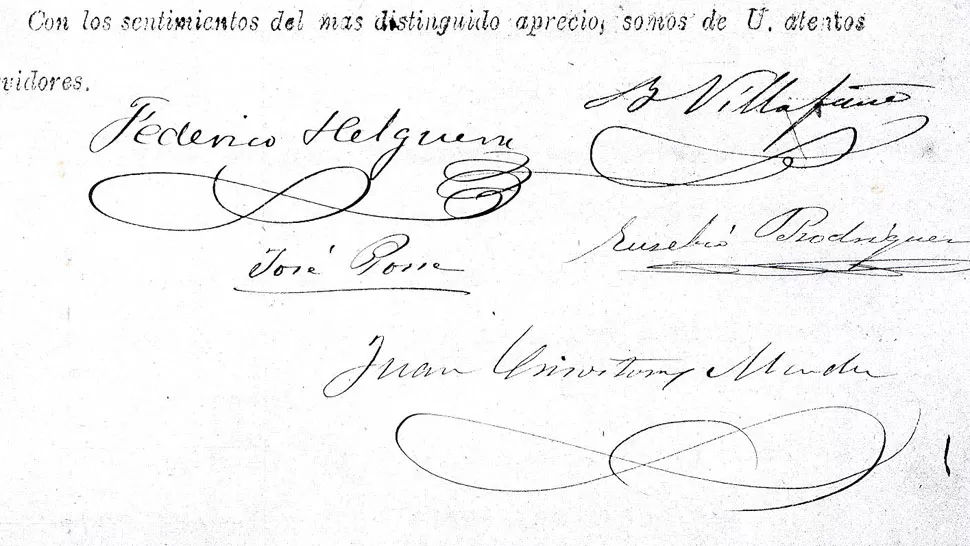 Con los sentimientos del mas distinguido aprecio, somos de U. atentos
vidores.
B Villafañe
Federico Helguera
Eusebio Rodriguez
José Posse
Juan Crisostomo Mendez